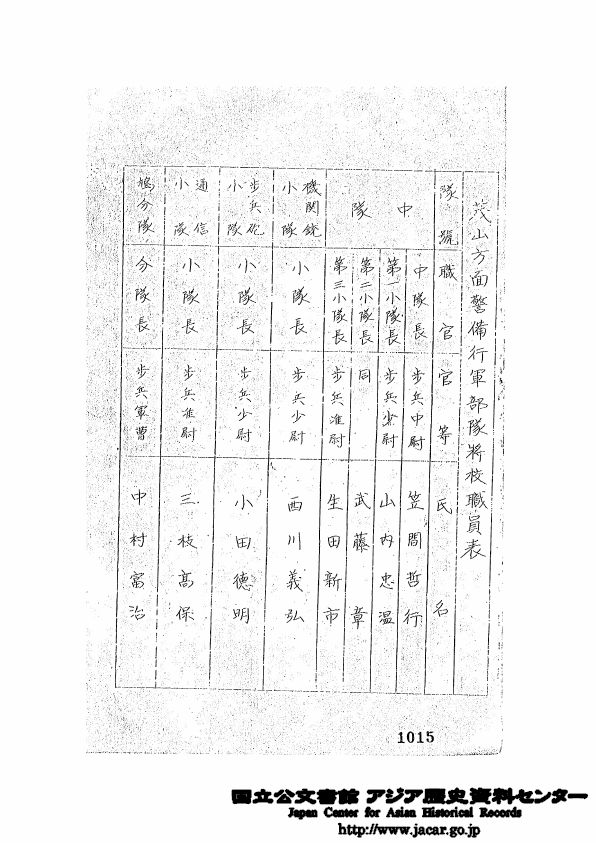 茂山方面警備行軍部隊將校職員表
隊號 職官 官等 氏名
中隊 中隊長 步兵中尉 笠間哲行
第一小隊長 步兵少尉 山内忠温
第二小隊長 同 武藤章
第三小隊長 步兵准尉 生田新市
機關銃小隊 小隊長 步兵少尉 西川義弘
步兵砲小隊 小隊長 步兵少尉 小田德明
通信小隊 小隊長 步兵准尉 三枝高保
鳩分隊 分隊長 步兵軍曹 中村富治
1015
国立公文書館 アジア歴史資料センター
Japan Center for Asian Historical Records
http://www.jacar.go.jp